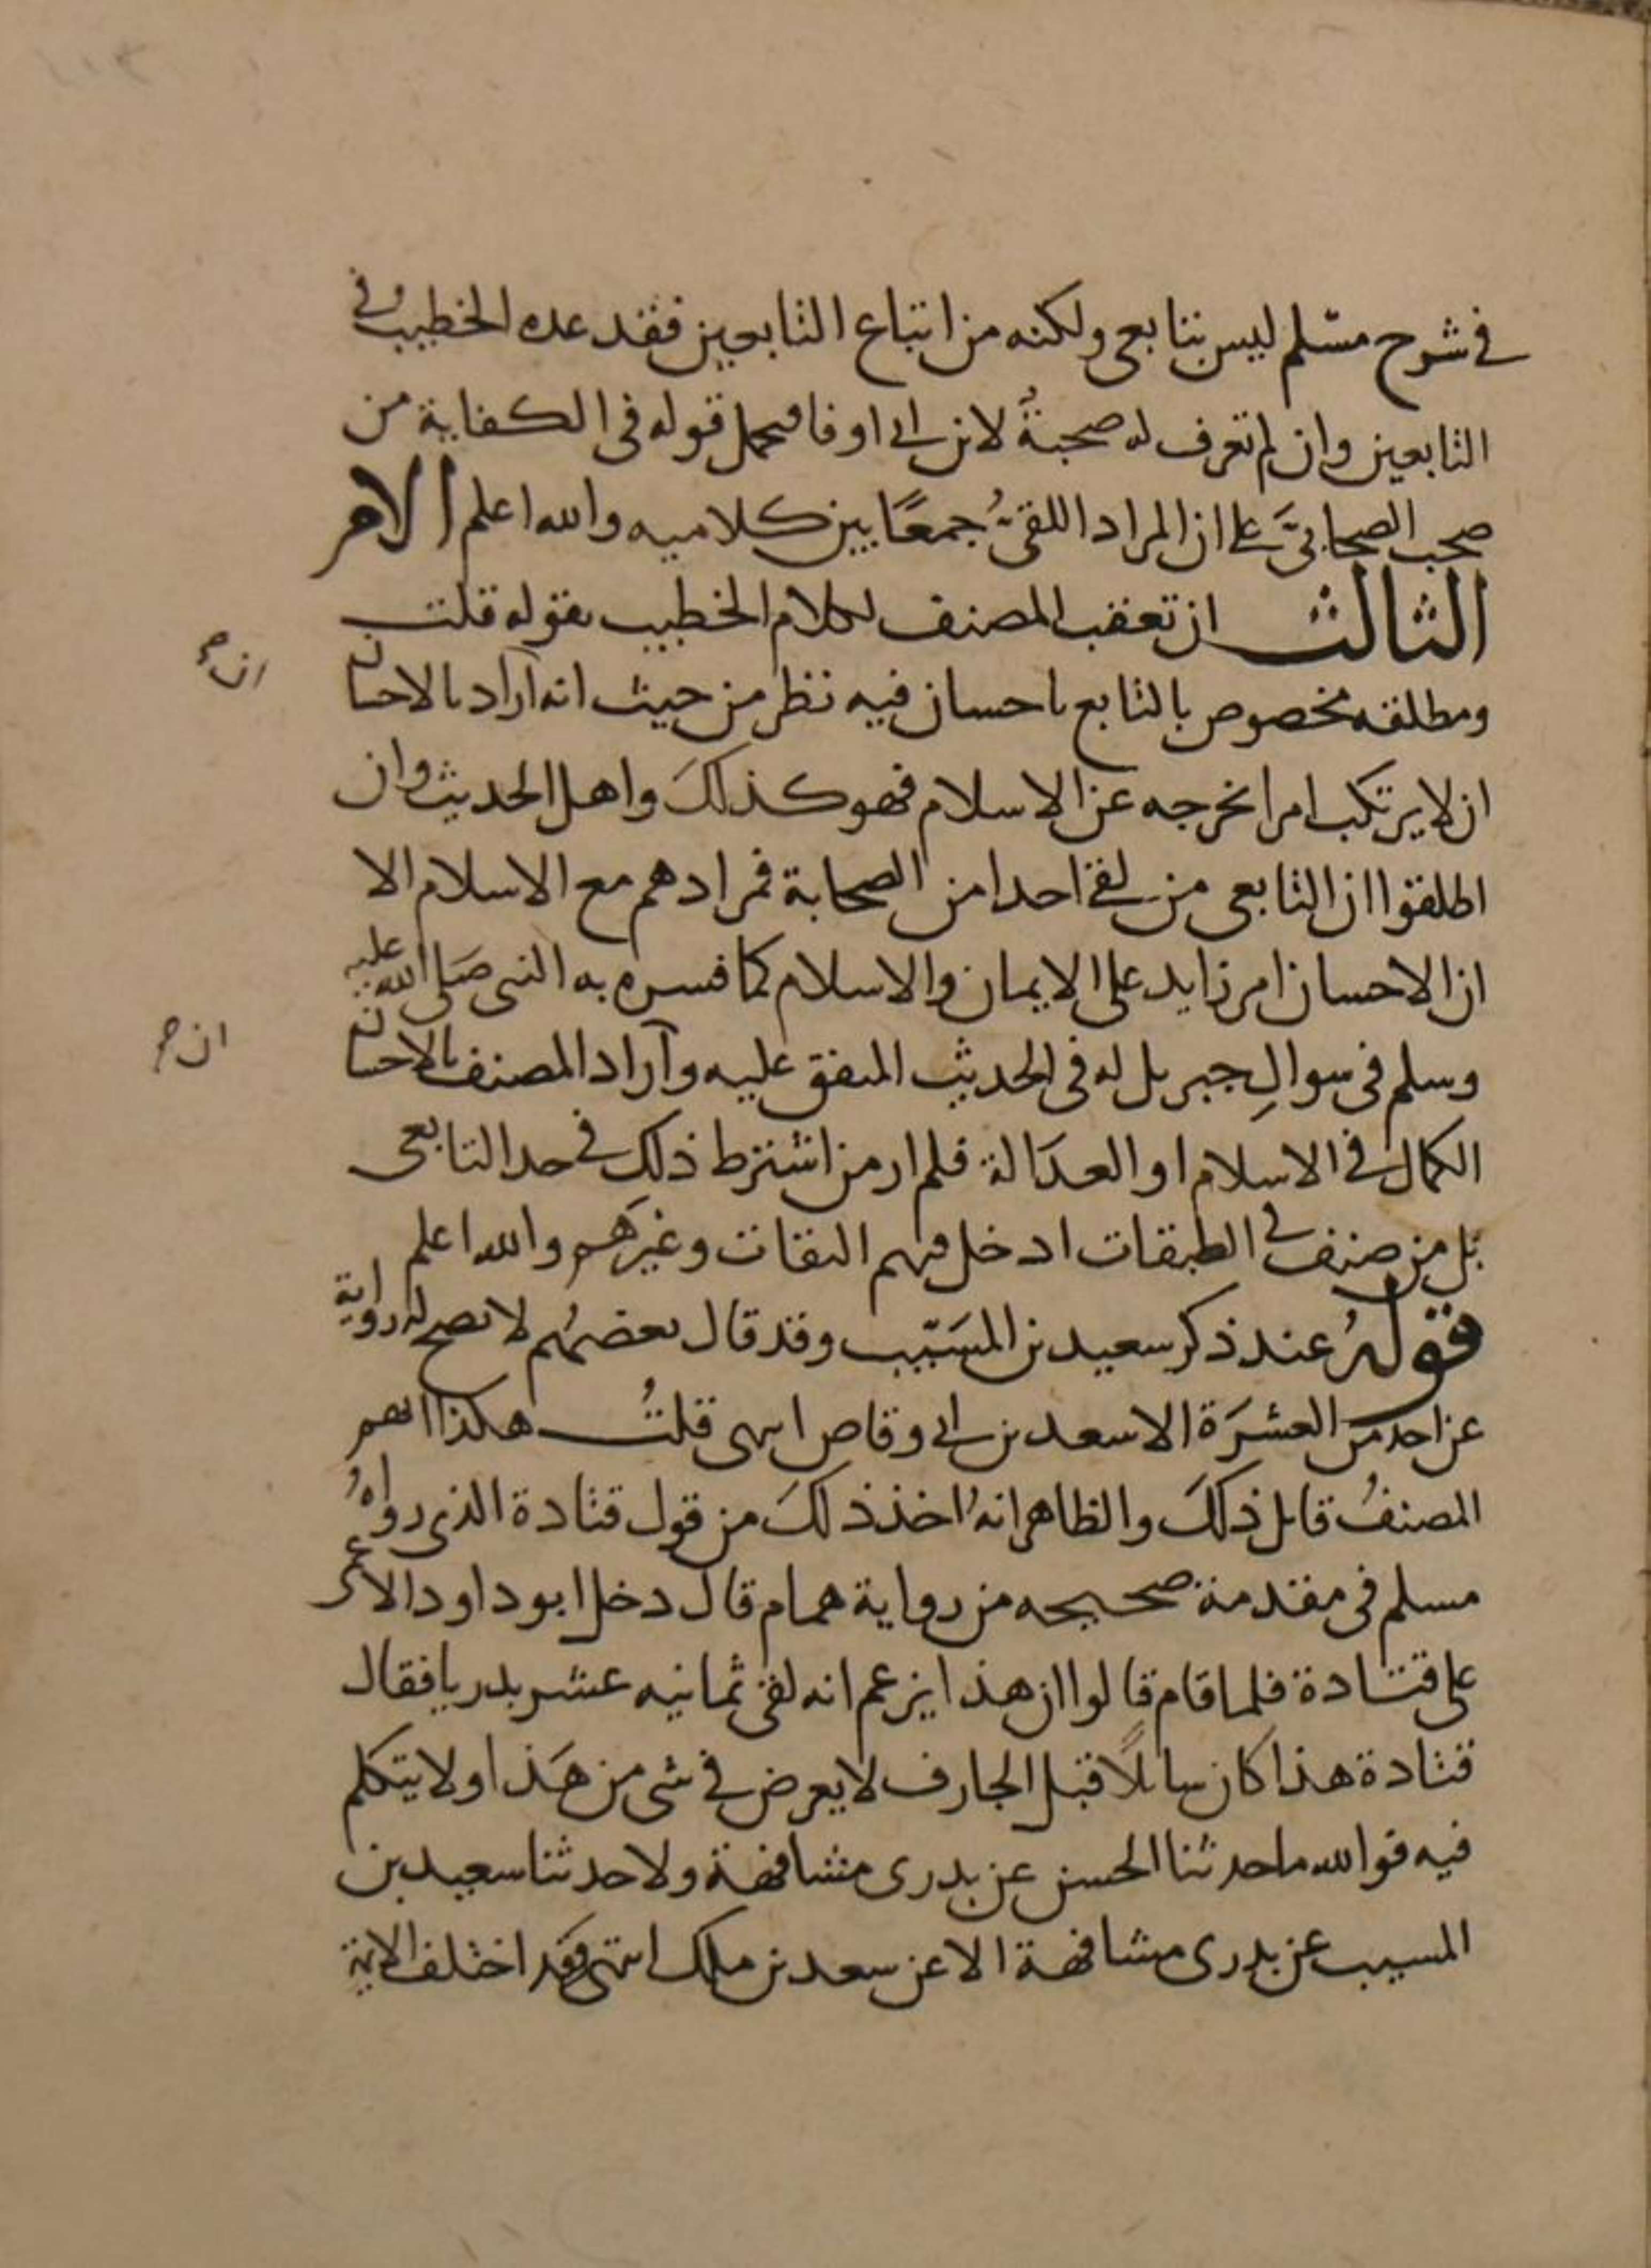 في شرح مسلم ليس بتابعي ولكنه من اتباع التابعين فقد عده الخطيب في
التابعين وان لم تعرف له صحبةٌ لابن ابي اوفا فيحمل قوله في الكفاية من
صحب الصحابيَّ علي ان المراد اللقيُّ جمعًا بين كلاميه والله اعلم الامر
الثالث ان تعقب المصنف لكلام الخطيب بقوله قلت
ومطلقه مخصوص بالتابع باحسان فيه نظر من حيث انه اراد بالاحسان
ان لا يرتكب امرا يخرجه عن الاسلام فهو كذلكَ واهل الحديث وان
اطلقوا ان التابعي من لقي احدا من الصحابة فمرادهم مع الاسلام الا
ان الاحسان امر زايد علي الايمان والاسلام كما فسره به النبي صَلى الله عليه
وسلم في سوالِ جبريل له في الحديث المتفق عليه وآراد المصنف بالاحسان
الكمال في الاسلام او العدَالة فلم ار من اشترط ذلك في حد التابعي
بل من صنف في الطبقات ادخل فيهم الثقات وغيرَهم والله اعلم
قولهُ عند ذكر سعيد بن المسَيّب وقد قال بعضهُم لا تصح له رواية
عن احد من العشرَة الا سعد بن ابي وقاص انتهى قلتُ هكذا ابهم
المصنفُ قايل ذلكَ والظاهر انهُ اخذ ذلكَ من قول قتادة الذي رواهُ
مسلم في مقدمة صحيحه من رواية همام قال دخل ابو داود الاعمى
علي قتادة فلما قام قالوا ان هذا يزعم انه لقي ثمانيه عشر بدريا فقال
قتادة هذا كان سايلًا قبل الجارف لا يعرض في شي من هَذا ولا يتكلم
فيه فوالله ما حدثنا الحسن عن بدري مشافهة ولا حدثنا سعيد بن
المسيب عن بدري مشافهة الا عن سعد بن ملك انتهى وقد اختلف الايمة